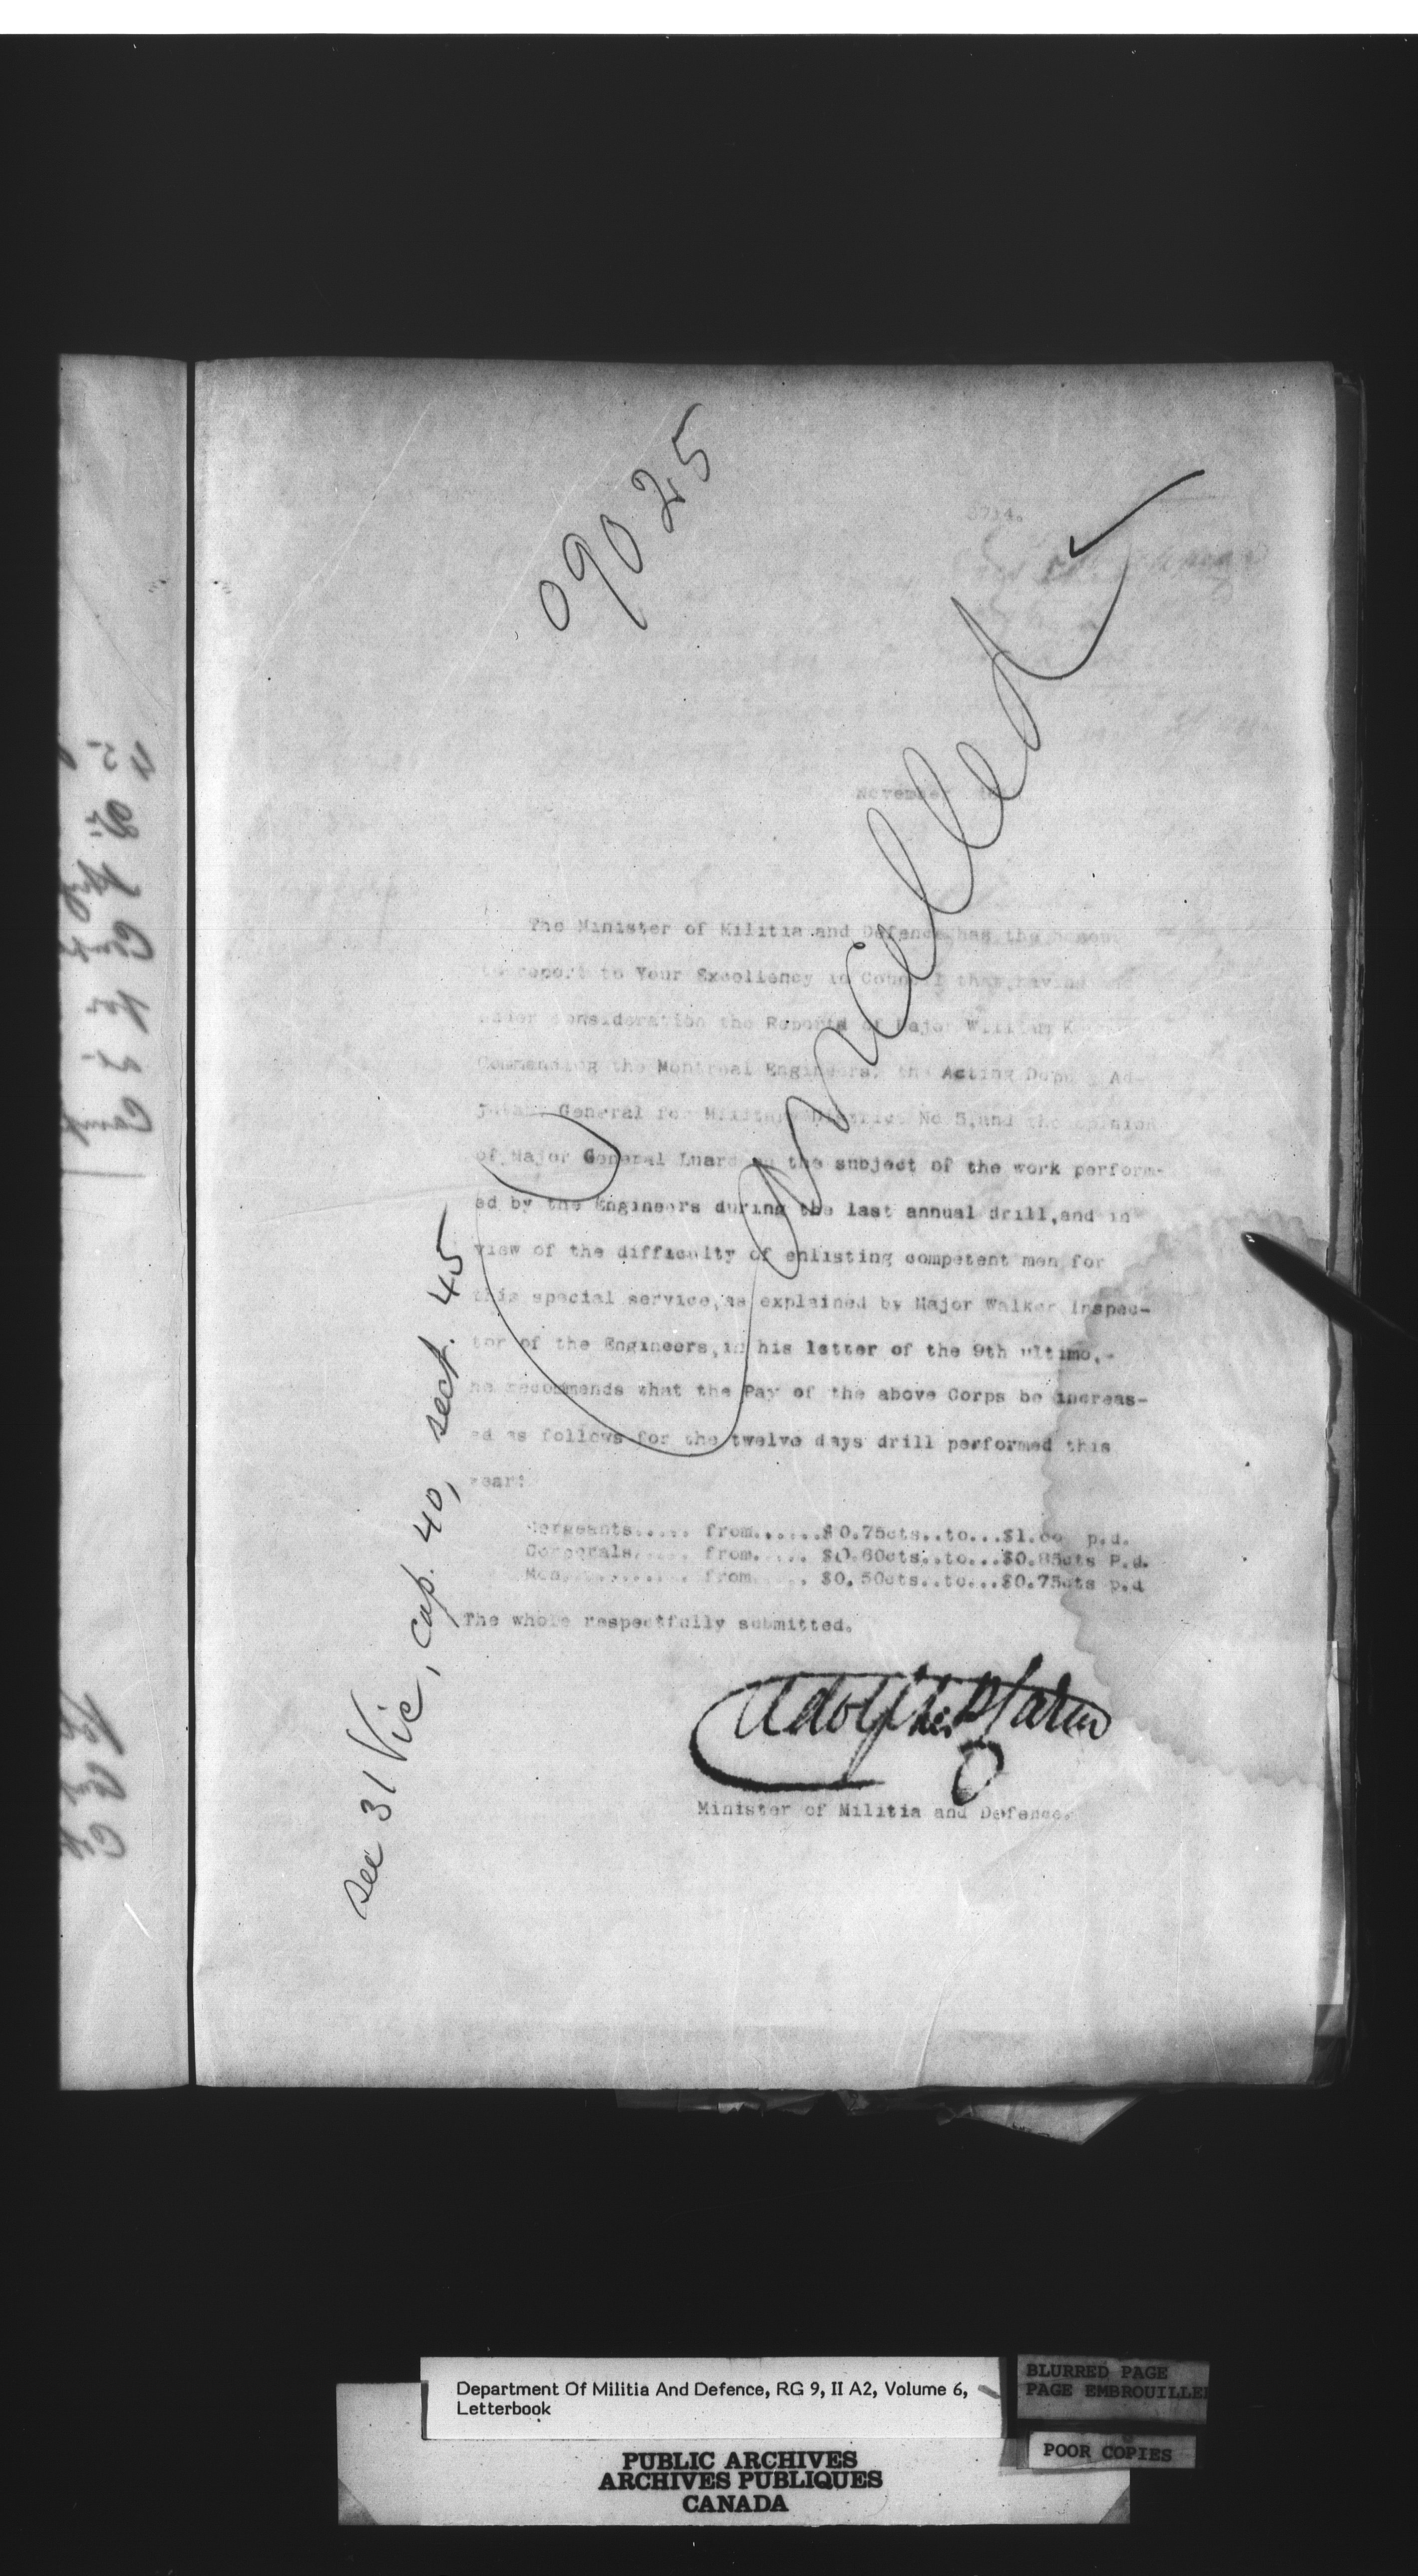 09025
Cancelled
November
The Minister of Militia and Defence has the honour
to report to Your Excellency in Council that, having
under consideration the Reports of Major William
Commanding the Montreal Engineers, the Acting Deputy Ad-
jutant General for Military District No 5, and the opinion
of Major General Luard on the subject of the work perform-
ed by the Engineers during the last annual drill, and in
view of the difficulty of enlisting competent men for
this special service, as explained by Major Walker Inspec-
tor of the Engineers, in his letter of the 9th ultimo,-
he recommends what the Pay of the above Corps be increas-
ed as follows for the twelve days drill performed this
year:
Sergeants..... from......$0.75cts..to...$1.00 p.d.
Corporals..... from..... $0.60cts..to...$0.85cts P.d.
Men........... from..... $0.50cts..to...$0.75cts p.d
The whole respectfully submitted.
Adolphe P. Caron
Minister of Militia and Defence.
see 31 Vic, cap. 40, sect. 45
Department Of Militia And Defence, RG 9, II A2, Volume 6,
Letterbook
BLURRED PAGE
PAGE EMBROUILLEE
POOR COPIES
PUBLIC ARCHIVES
ARCHIVES PUBLIQUES
CANADA